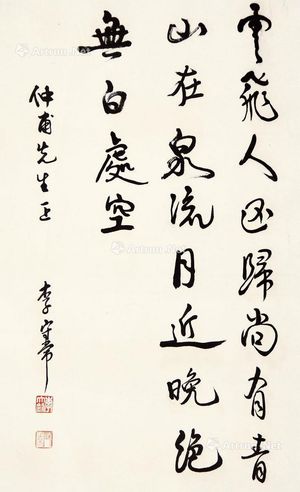 雲飛人歸尚有青
山在泉流月近晚絕
無白處空
仲甫先生正
李守常